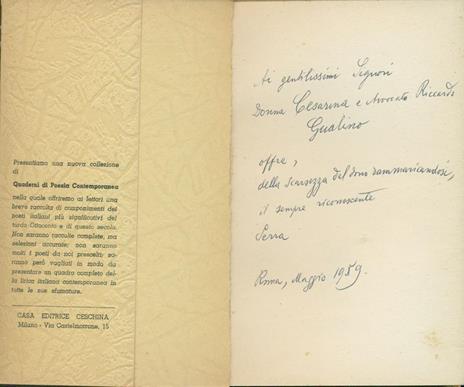 Presentiamo una nuova collezione
di
Quaderni di Poesia Contemporanea
nella quale offriremo ai lettori una
breve raccolta di componimenti dei
poeti italiani più significativi del
tardo Ottocento e di questo secolo.
Non saranno raccolte complete, ma
selezioni accurate: non saranno
molti i poeti da noi prescelti: sa-
ranno però vagliati in modo da
presentare un quadro completo del-
la lirica italiana contemporanea in
tutte le sue sfumature.
CASA EDITRICE CESCHINA
Milano - Via Castelmorrone, 15
Ai gentilissimi Signori
Donna Cesarina e Avvocato Riccardo
Gualino
offre,
della scarsezza del dono rammaricandosi,
il sempre riconoscente
Serra
Roma, Maggio 1959.